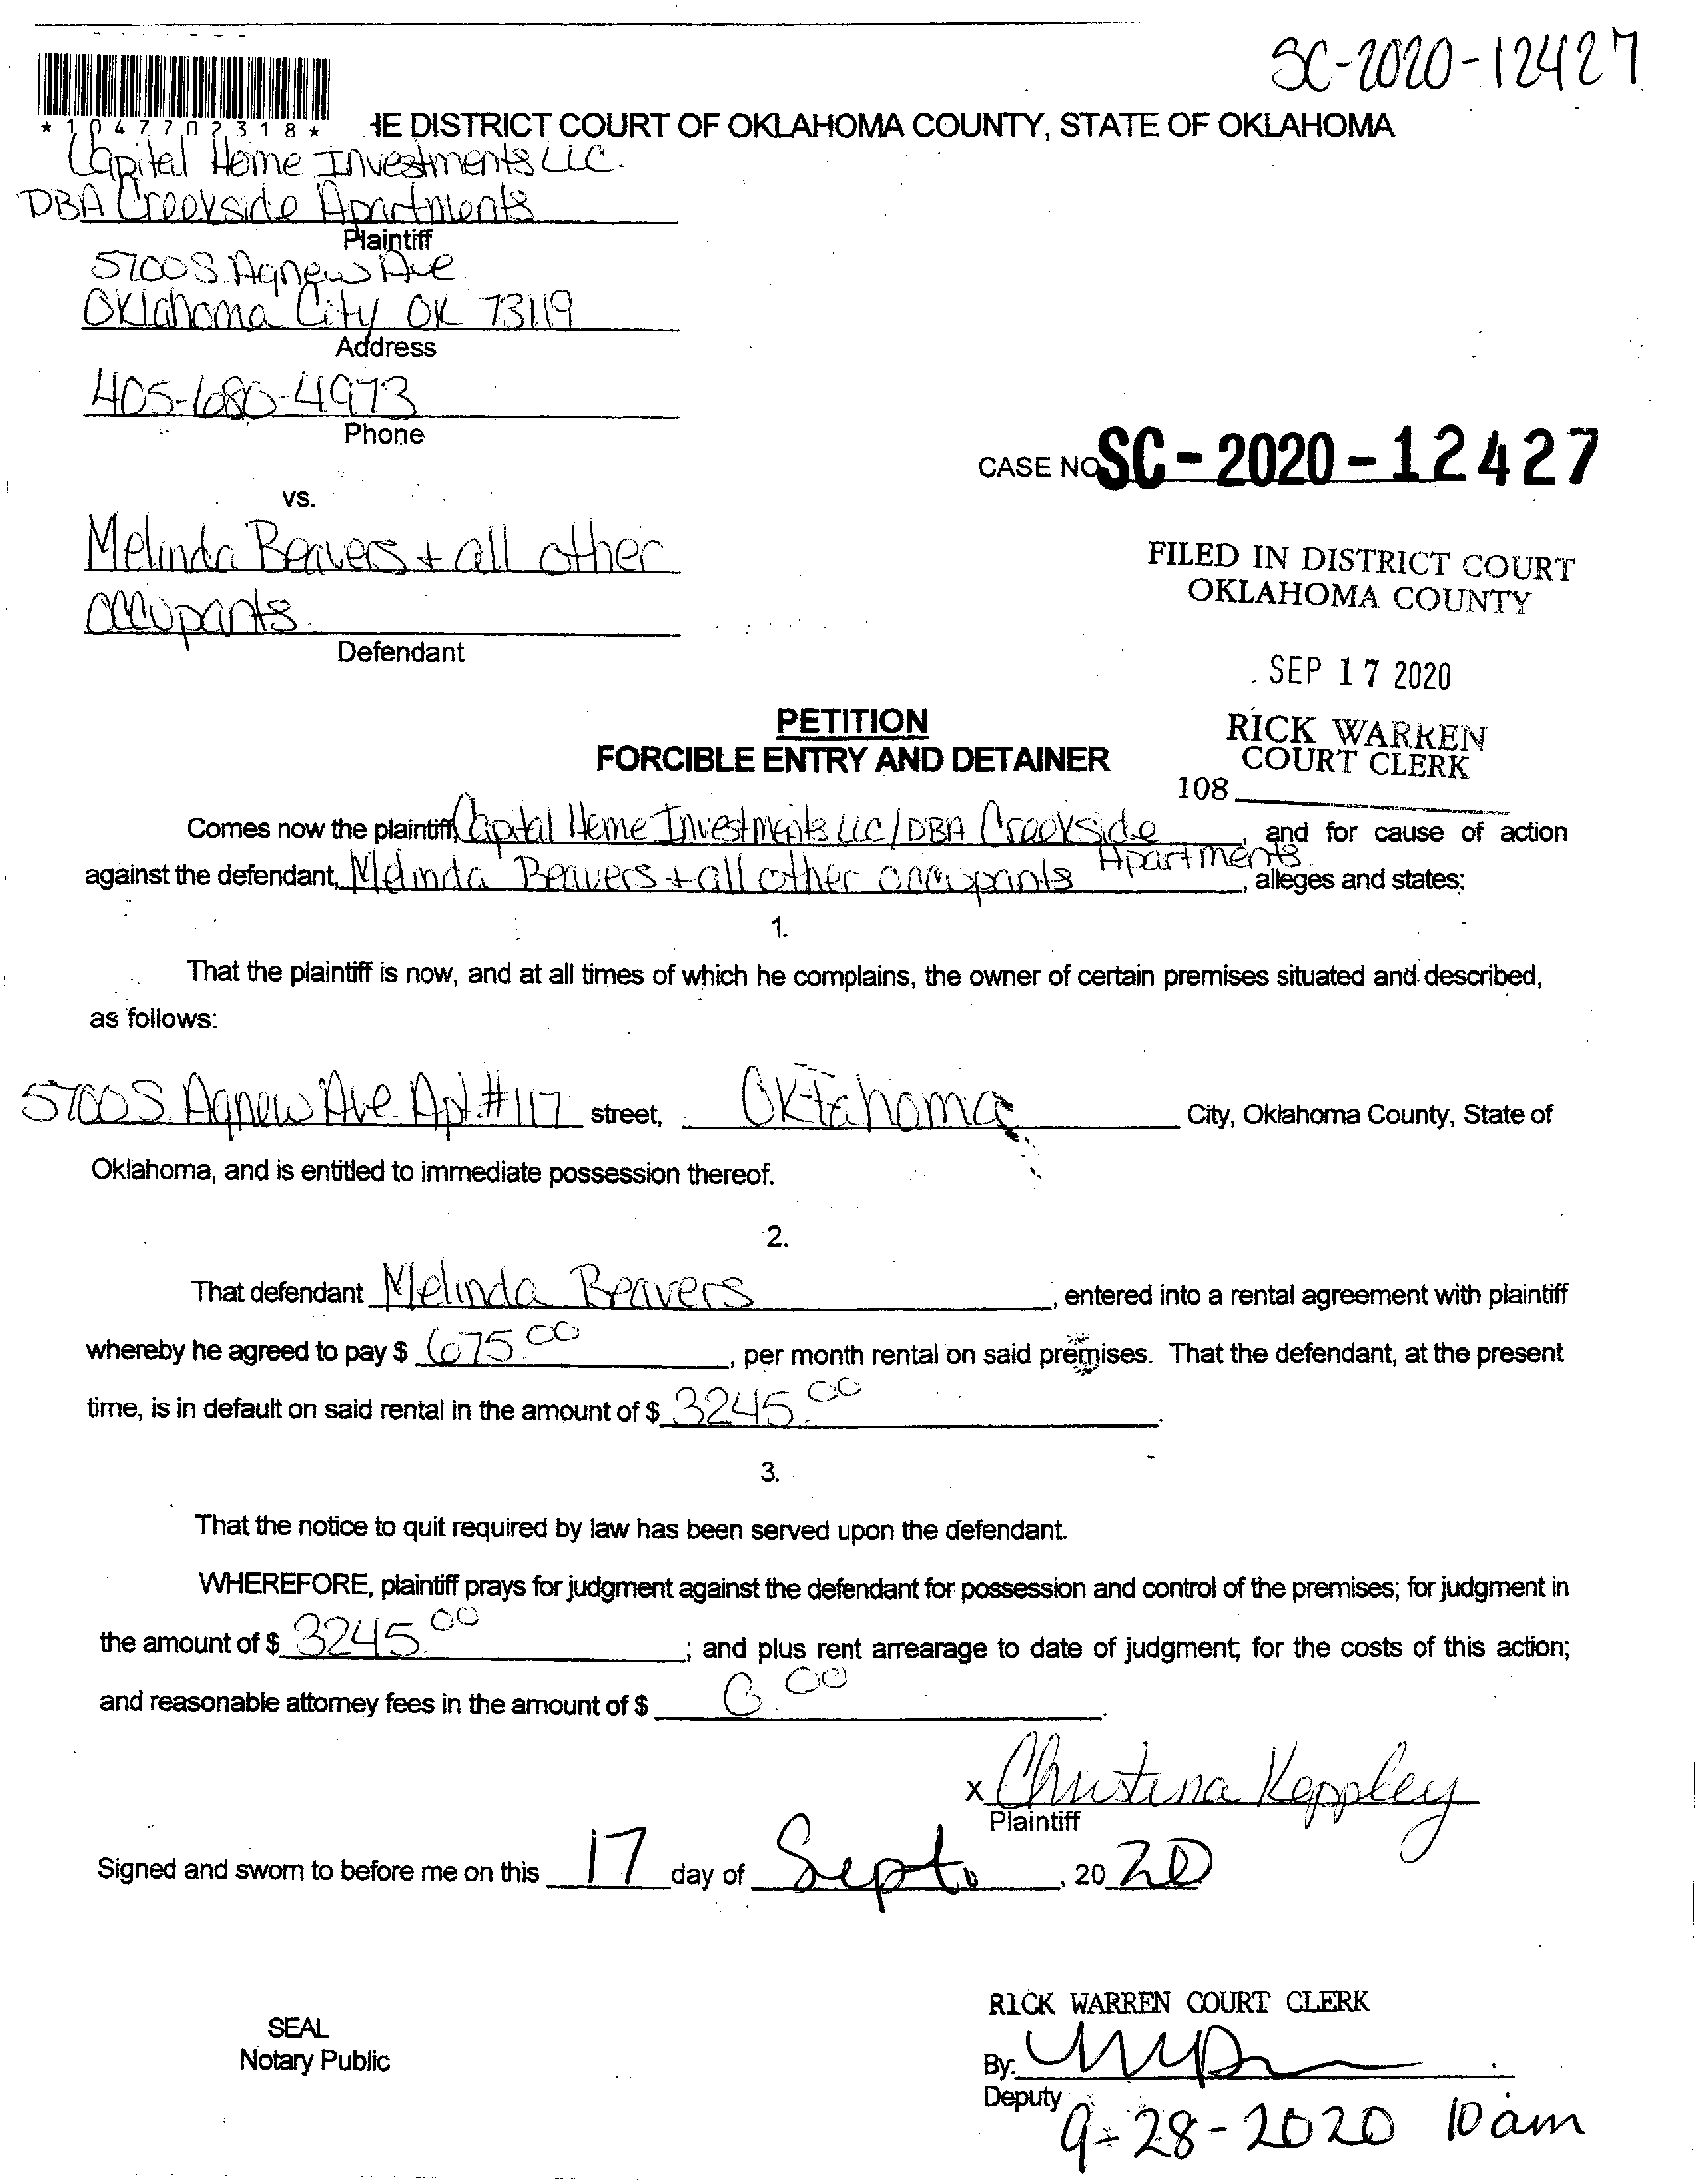 SC-2020-12427
*1047702318*
HE DISTRICT COURT OF OKLAHOMA COUNTY, STATE OF OKLAHOMA
Capital Home Investments LLC.
DBA Creekside Apartments
Plaintiff
5700 S. Agnew Ave
Oklahoma City OK 73119
Address
405-680-4973
Phone
CASE NO. SC-2020-12427
vs.
Melinda Beavers + all other
occupants.
Defendant
FILED IN DISTRICT COURT
OKLAHOMA COUNTY
SEP 17 2020
RICK WARREN
COURT CLERK
108
PETITION
FORCIBLE ENTRY AND DETAINER
Comes now the plaintiff, Capital Home Investments LLC/DBA Creekside Apartments, and for cause of action
against the defendant, Melinda Beavers + all other occupants, alleges and states:
1.
That the plaintiff is now, and at all times of which he complains, the owner of certain premises situated and described,
as follows:
5700 S. Agnew Ave Apt. #117 street, Oklahoma City, Oklahoma County, State of
Oklahoma, and is entitled to immediate possession thereof.
2.
That defendant Melinda Beavers, entered into a rental agreement with plaintiff
whereby he agreed to pay $ 675.00, per month rental on said premises. That the defendant, at the present
time, is in default on said rental in the amount of $ 3245.00.
3.
That the notice to quit required by law has been served upon the defendant.
WHEREFORE, plaintiff prays for judgment against the defendant for possession and control of the premises; for judgment in
the amount of $ 3245.00; and plus rent arrearage to date of judgment; for the costs of this action;
and reasonable attorney fees in the amount of $ 0.00.
x Christina Keppley
Plaintiff
Signed and sworn to before me on this 17 day of Sept., 2020
RICK WARREN COURT CLERK
SEAL
Notary Public
By:
Deputy
9-28-2020 10am